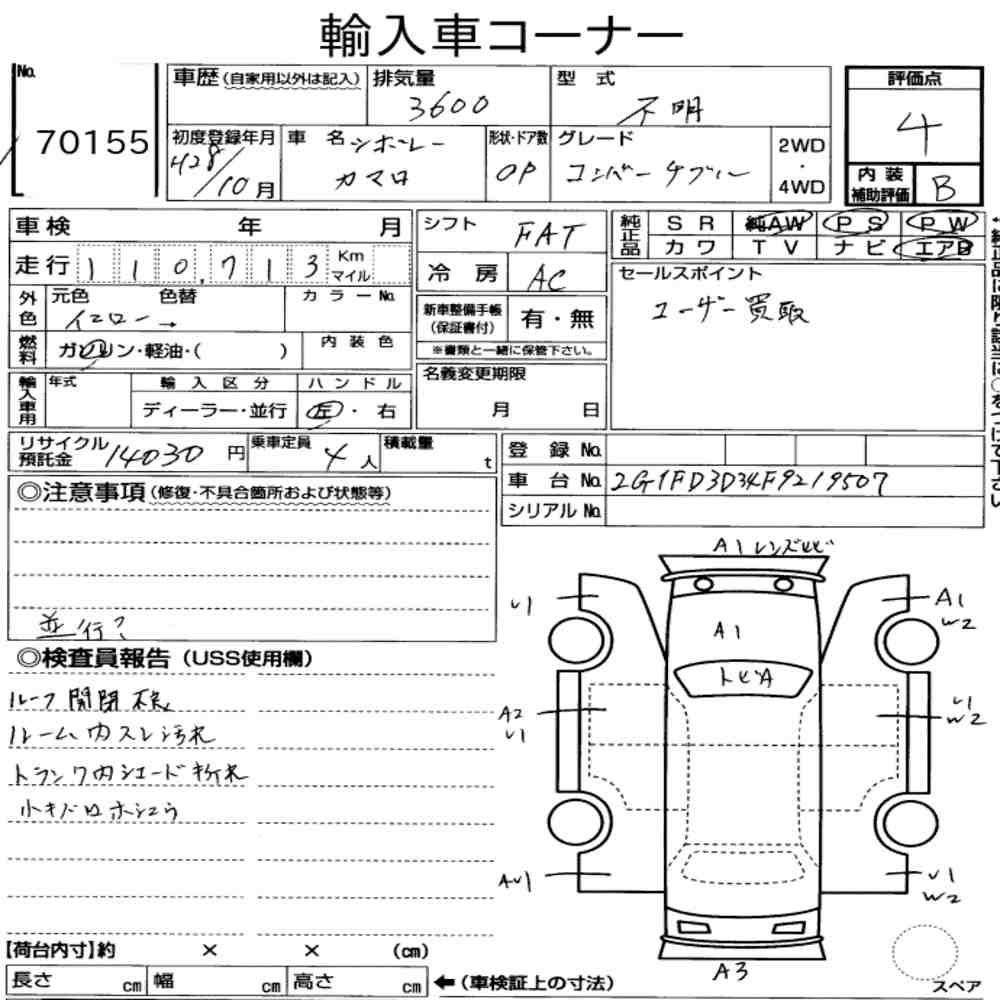 輸入車コーナー
No. 70155
車歴 (自家用以外は記入)
排気量 3600
型式 不明
評価点 4
初度登録年月 H28/10月
車名 シボレー カマロ
形状・ドア数 OP
グレード コンバーチブル
2WD・4WD
内装補助評価 B
車検 年 月
シフト FAT
純正品 SR 純AW PS PW
カワ TV ナビ エアB
走行 110,713 Km マイル
冷房 AC
セールスポイント
ユーザー買取
外色 元色 色替 カラーNo.
イエロー →
新車整備手帳 (保証書付) 有・無
※書類と一緒に保管下さい。
燃料 ガソリン・軽油・( )
内装色
名義変更期限
月 日
輸入車用 年式 輸入区分 ハンドル
ディーラー・並行 左・右
リサイクル預託金 14030円
乗車定員 4人
積載量 t
登録No.
車台No. 2G1FD3D34F9219507
シリアルNo.
◎注意事項 (修復・不具合箇所および状態等)
並行?
◎検査員報告 (USS使用欄)
ルーフ開閉不良
ルーム内スレ汚れ
トランク内シェード折れ
小キズロホシュウ
A1 レンズヒビ
U1
A1
W2
A1
トビA
A2
U1
U1
W2
AU1
U1
W2
A3
スペア
【荷台内寸】約 × × (cm)
長さ cm 幅 cm 高さ cm ←(車検証上の寸法)